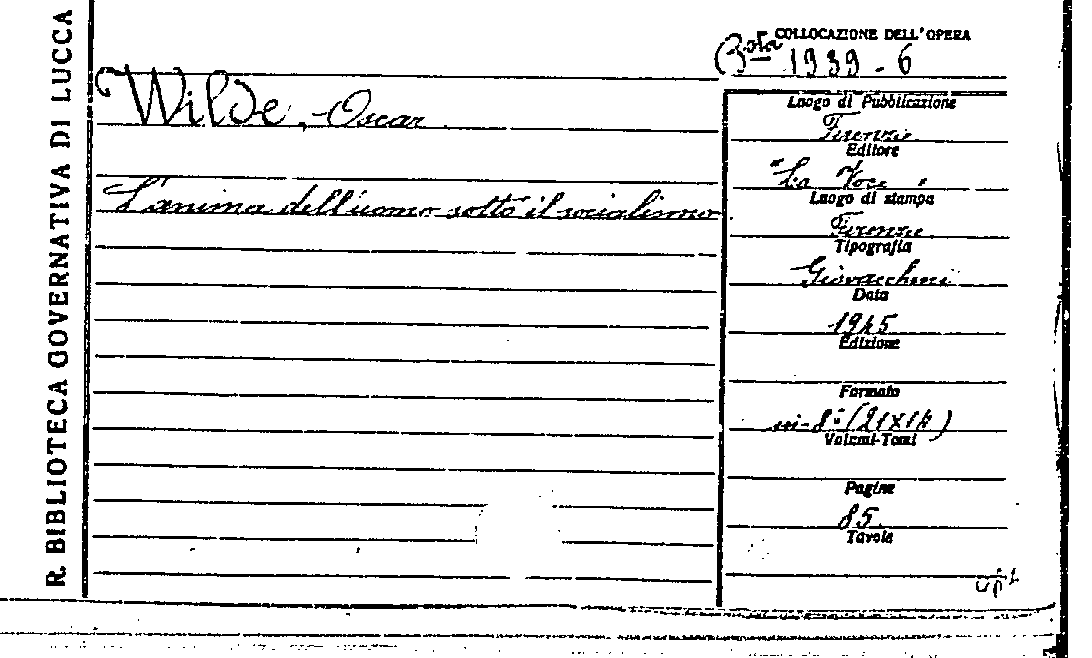 R. BIBLIOTECA GOVERNATIVA DI LUCCA
COLLOCAZIONE DELL'OPERA
Bsta 1939-6
Wilde, Oscar
L'anima dell'uomo sotto il socialismo
Luogo di Pubblicazione
Firenze
Editore
"La Voce"
Luogo di stampa
Firenze
Tipografia
Giovacchini
Data
1945
Edizione
Formato
in-8° (21x14)
Volumi-Tomi
Pagine
85
Tavole